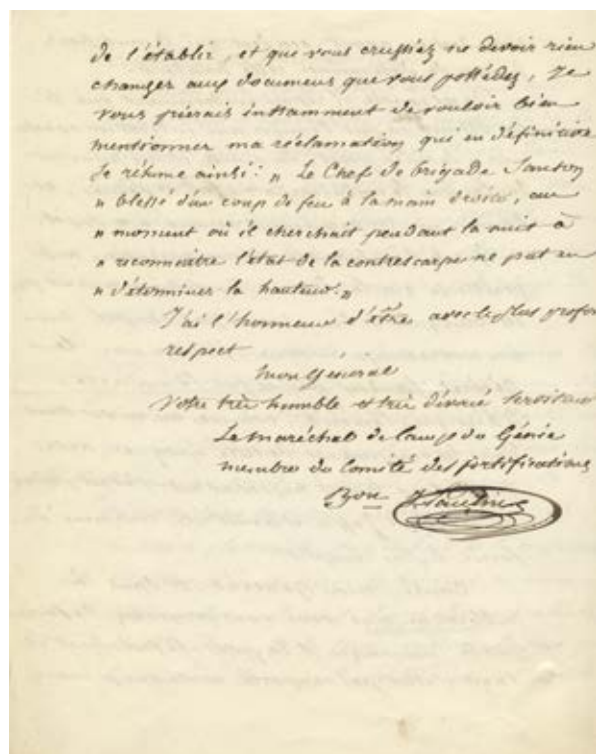 de l'établir, et que vous crussiez ne devoir rien
changer aux documens que vous possédez, Je
vous prierais instamment de vouloir bien
mentionner ma réclamation qui en définitive
se résume ainsi: „ Le Chef de brigade
„ blessé d'un coup de feu à la main droite, au
„ moment où il cherchait pendant la nuit à
„ reconnaitre l'état de la contrescarpe ne put en
„ déterminer la hauteur. „
J'ai l'honneur d'être avec le plus profond
respect
Mon General
Votre très humble et très dévoué serviteur
Le maréchal de camp du Génie
membre du Comité des fortifications
Bon